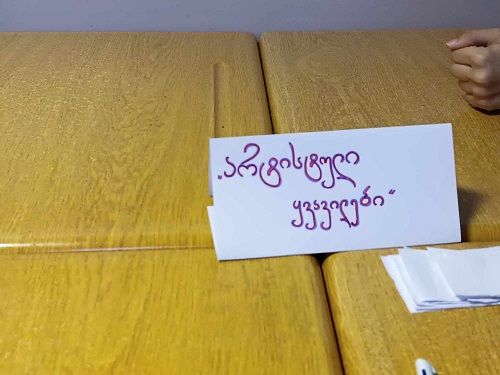 „არტისტული
ყვავილები“